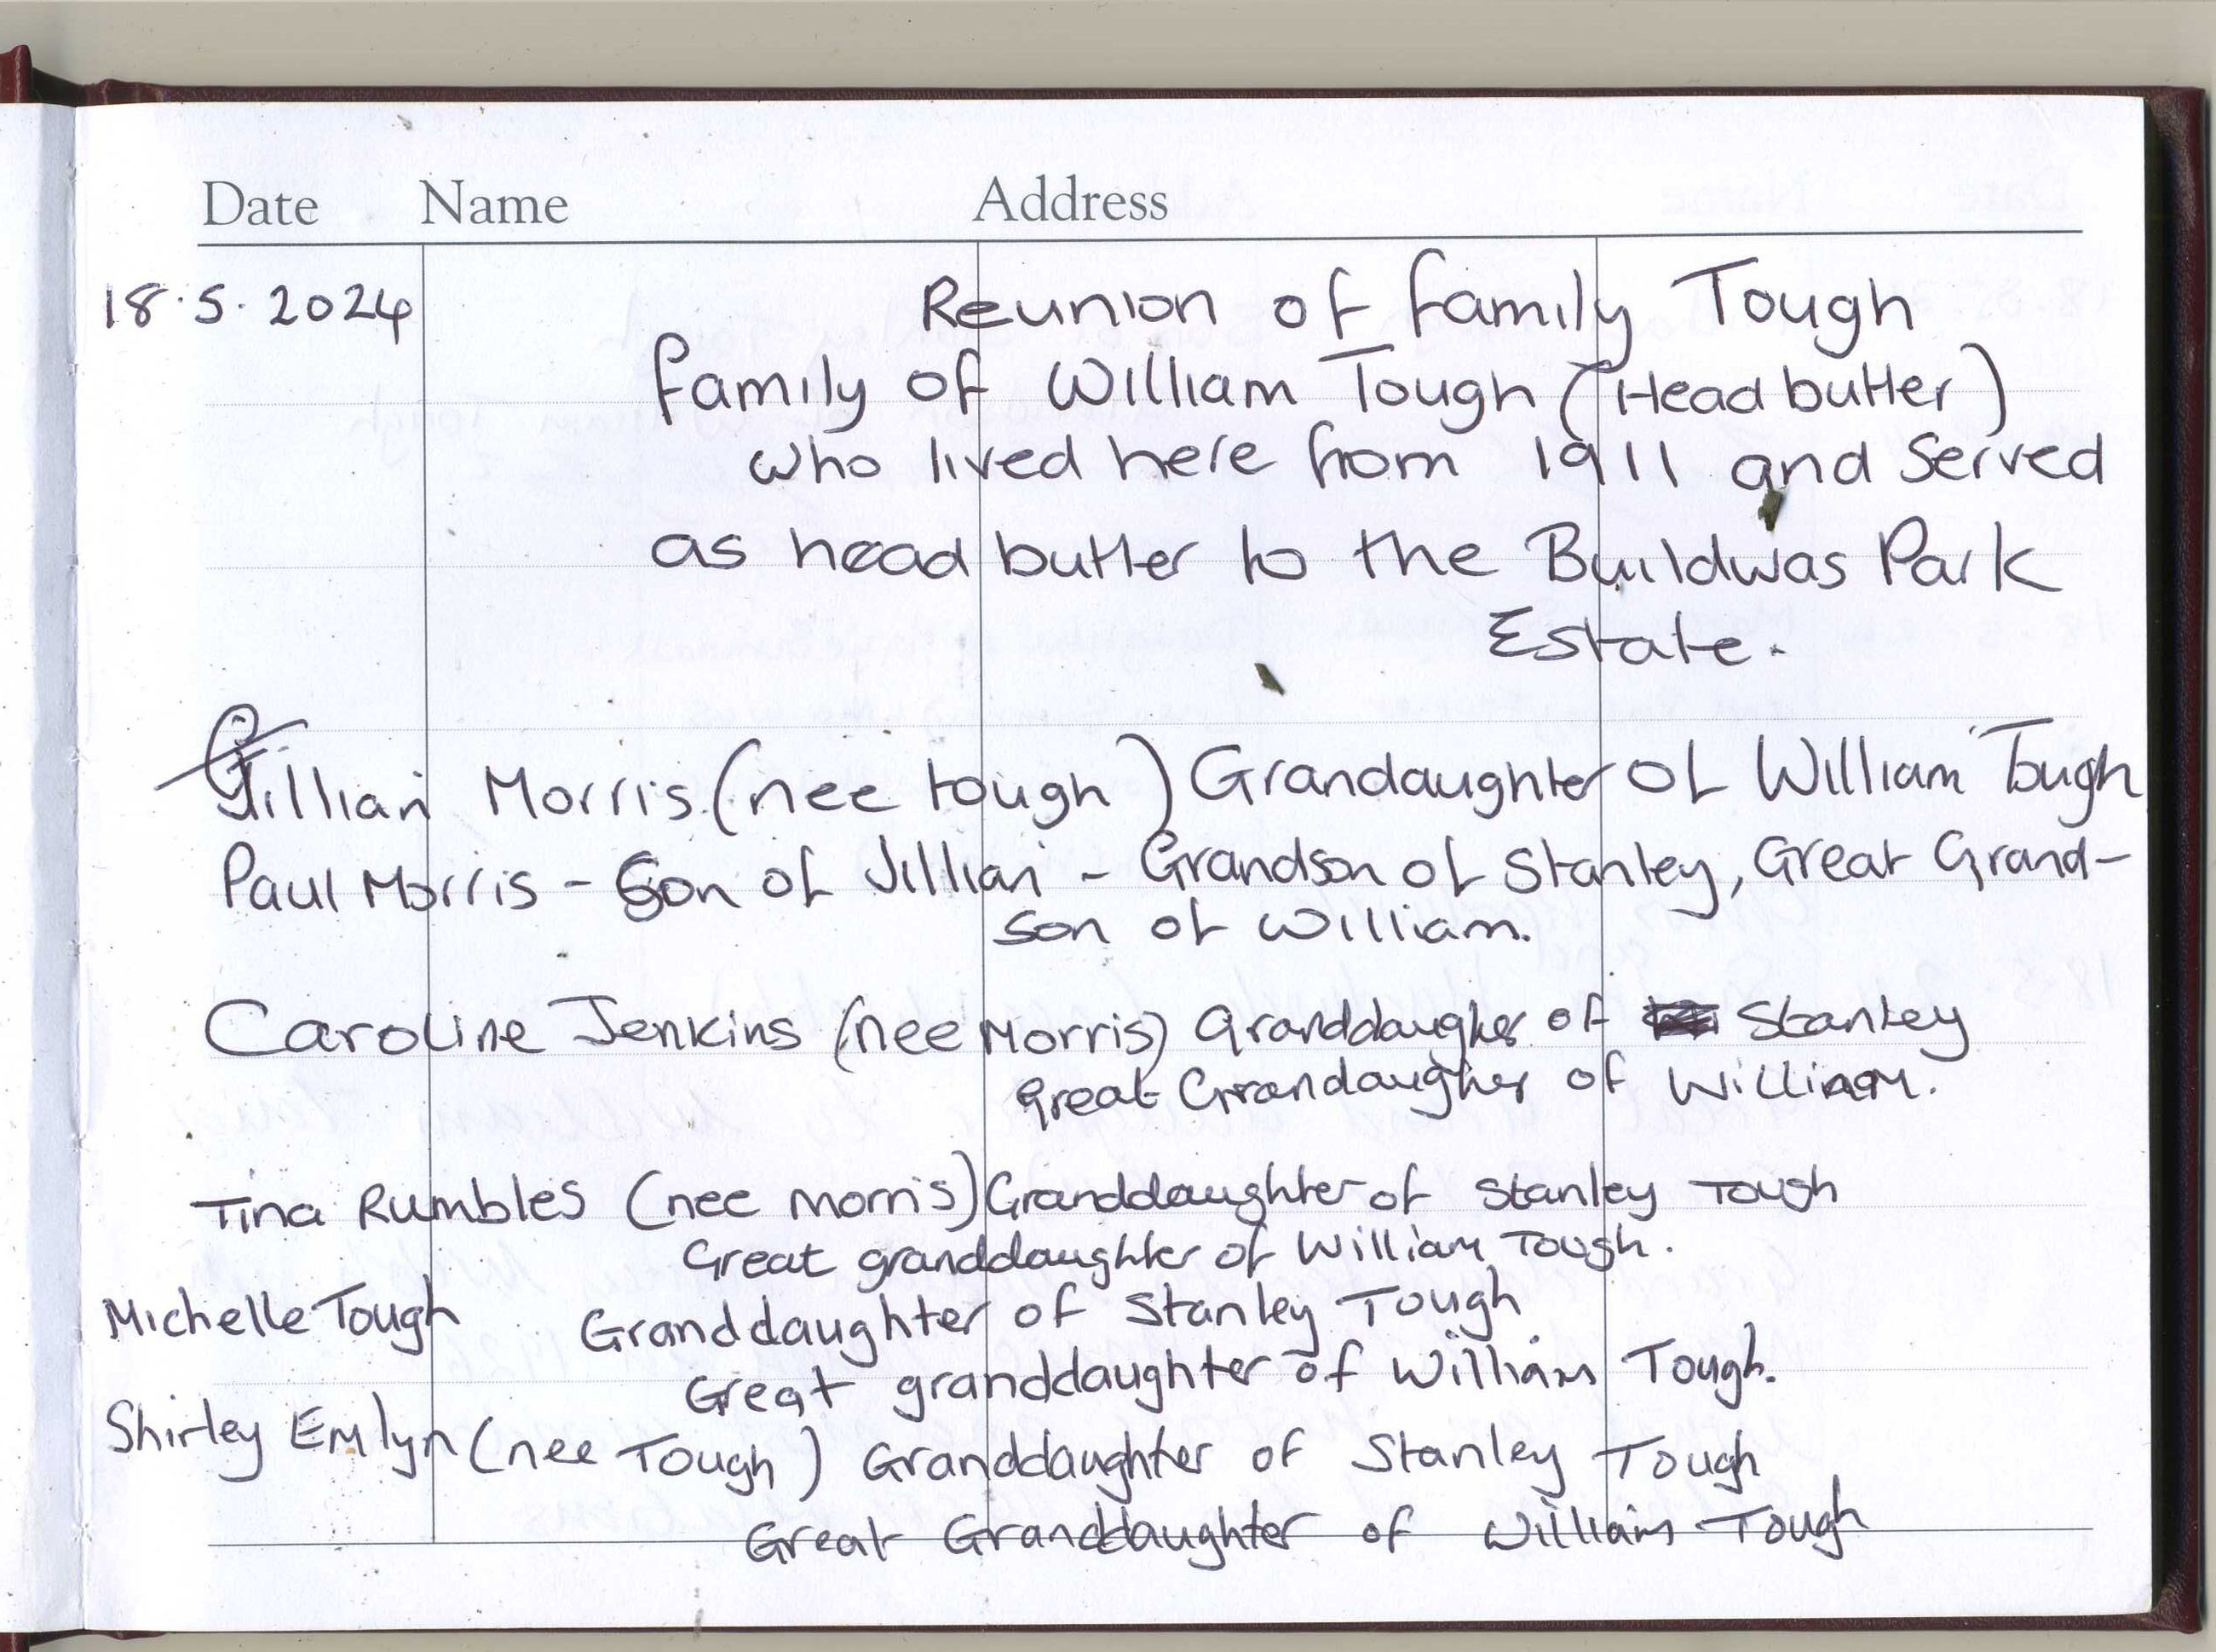 Date Name Address
18.5.2024 Reunion of family Tough
family of William Tough (Head butler)
who lived here from 1911 and Served
as head butler to the Buildwas Park
Estate.
Jillian Morris (nee tough) Grandaughter of William Tough
Paul Morris - Son of Jillian - Grandson of Stanley, Great Grand-
son of William.
Caroline Jenkins (nee Morris) Granddaugher of Stanley
great Grandaugher of William.
Tina Rumbles (nee Morris) Granddaughter of Stanley Tough
Great granddaughter of William Tough.
Michelle Tough Granddaughter of Stanley Tough.
Great granddaughter of William Tough.
Shirley Emlyn (nee Tough) Granddaughter of Stanley Tough
Great Granddaughter of William Tough